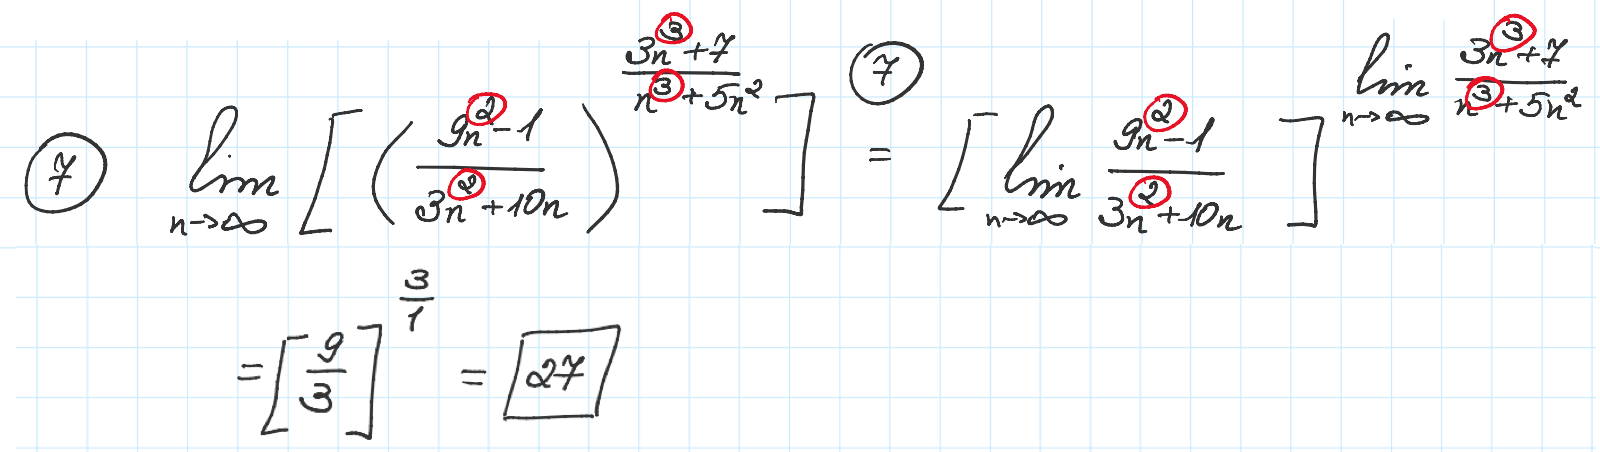 ⑦ lim n→∞ [ ( (9n² - 1) / (3n² + 10n) ) ^ ( (3n³ + 7) / (n³ + 5n²) ) ] =⑦ [ lim n→∞ (9n² - 1) / (3n² + 10n) ] ^ ( lim n→∞ (3n³ + 7) / (n³ + 5n²) )
= [ 9/3 ] ^ (3/1) = 27